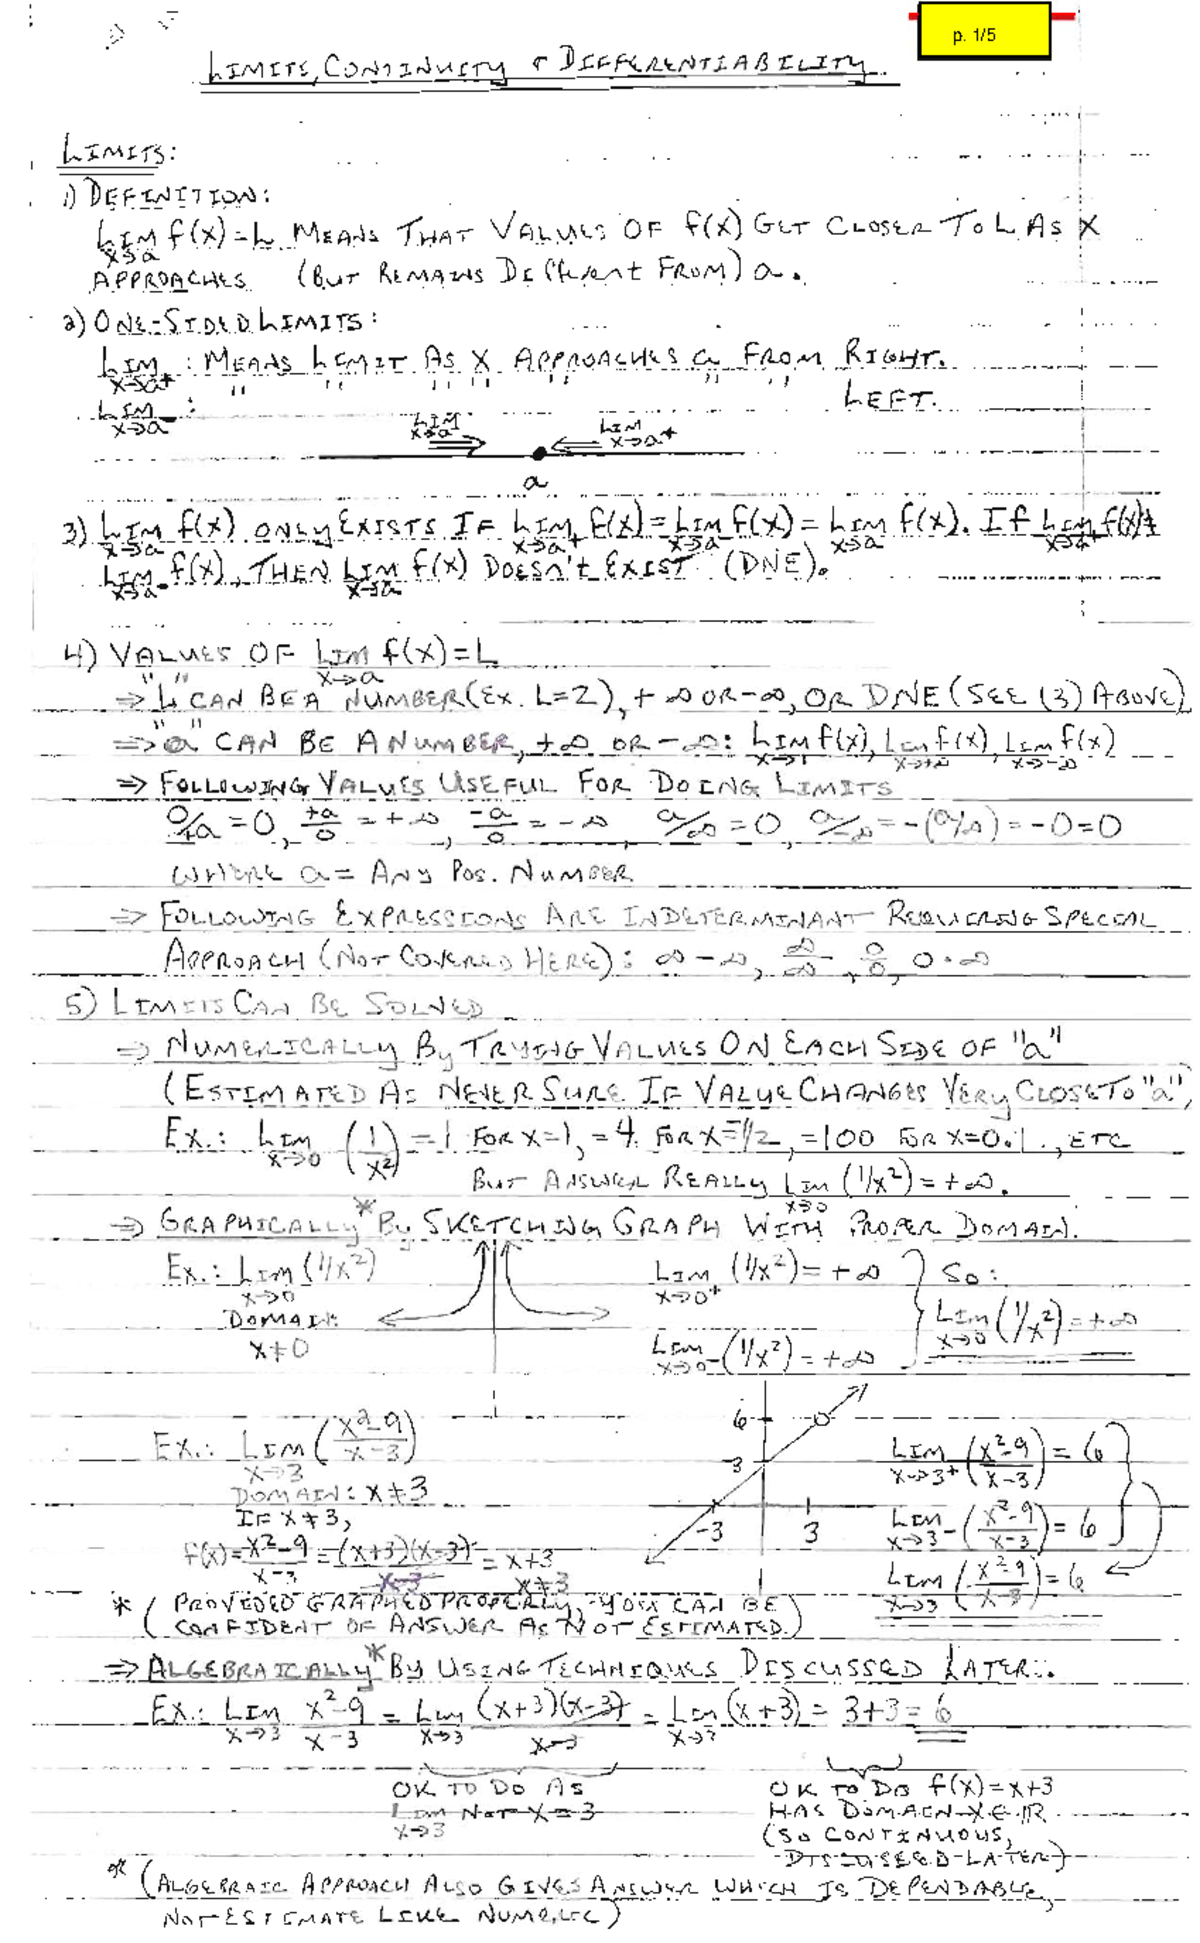 p. 1/5
LIMITS, CONTINUITY & DIFFERENTIABILITY
LIMITS:
1) DEFINITION:
LIM x→a f(x)=L MEANS THAT VALUES OF f(x) GET CLOSER TO L AS X
APPROACHES (BUT REMAINS DIFFERENT FROM) a.
2) ONE-SIDED LIMITS:
LIM x→a+ : MEANS LIMIT AS X APPROACHES a FROM RIGHT.
LIM x→a- : " " " " " " " LEFT.
LIM x→a- LIM x→a+
a
3) LIM x→a f(x) ONLY EXISTS IF LIM x→a+ f(x) = LIM x→a- f(x) = LIM x→a f(x). IF LIM x→a+ f(x) ≠
LIM x→a- f(x), THEN LIM x→a f(x) DOESN'T EXIST (DNE).
4) VALUES OF LIM x→a f(x)=L
⇒ "L" CAN BE A NUMBER (EX. L=2), +∞ OR -∞, OR DNE (SEE (3) ABOVE)
⇒ "a" CAN BE A NUMBER, +∞ OR -∞: LIM x→1 f(x), LIM x→+∞ f(x), LIM x→-∞ f(x)
⇒ FOLLOWING VALUES USEFUL FOR DOING LIMITS
0/±a = 0, +a/0 = +∞, -a/0 = -∞, a/∞ = 0, a/-∞ = -(a/∞) = -0 = 0
WHERE a = ANY POS. NUMBER
⇒ FOLLOWING EXPRESSIONS ARE INDETERMINANT REQUIRING SPECIAL
APPROACH (NOT COVERED HERE): ∞-∞, ∞/∞, 0/0, 0·∞
5) LIMITS CAN BE SOLVED
⇒ NUMERICALLY BY TRYING VALUES ON EACH SIDE OF "a"
(ESTIMATED AS NEVER SURE IF VALUE CHANGES VERY CLOSE TO "a")
EX.: LIM x→0 (1/x²) = 1 FOR X=1, =4 FOR X=1/2, =100 FOR X=0.1., ETC
BUT ANSWER REALLY LIM x→0 (1/x²) = +∞.
⇒ GRAPHICALLY* BY SKETCHING GRAPH WITH PROPER DOMAIN.
EX.: LIM x→0 (1/x²) LIM x→0+ (1/x²) = +∞ } SO:
DOMAIN: LIM x→0 (1/x²) = +∞
x≠0 LIM x→0- (1/x²) = +∞
6
EX.: LIM x→3 (x²-9/x-3) 3 LIM x→3+ (x²-9/x-3) = 6
DOMAIN: X≠3
IF X≠3, -3 3 LIM x→3- (x²-9/x-3) = 6
f(x) = x²-9/x-3 = (x+3)(x-3)/x-3 = x+3 x≠3 LIM x→3 (x²-9/x-3) = 6
* (PROVIDED GRAPHED PROPERLY, YOU CAN BE
CONFIDENT OF ANSWER AS NOT ESTIMATED.)
⇒ ALGEBRAICALLY* BY USING TECHNIQUES DISCUSSED LATER:.
EX.: LIM x→3 x²-9/x-3 = LIM x→3 (x+3)(x-3)/x-3 = LIM x→3 (x+3) = 3+3 = 6
OK TO DO AS OK TO DO f(x)=x+3
LIM x→3 NOT X=3 HAS DOMAIN X∈ℝ
(SO CONTINUOUS,
DISCUSSED LATER)
* (ALGEBRAIC APPROACH ALSO GIVES ANSWER WHICH IS DEPENDABLE,
NOT ESTIMATE LIKE NUMERIC)